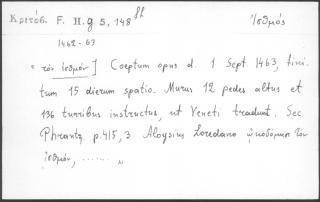 Κριτόβ. F. H. g 5, 148 ff
Ἰσθμός
1462-63
" τὸν ἰσθμὸν] Coeptum opus d. 1 Sept. 1463, fini-
tum 15 dierum spatio. Murus 12 pedes altus et
136 turribus instructus, ut Veneti tradunt. Sec.
Phrantz. p. 415, 3 Aloysius Loredano ᾠκοδόμησε τὸν
ἰσθμόν, ...... "